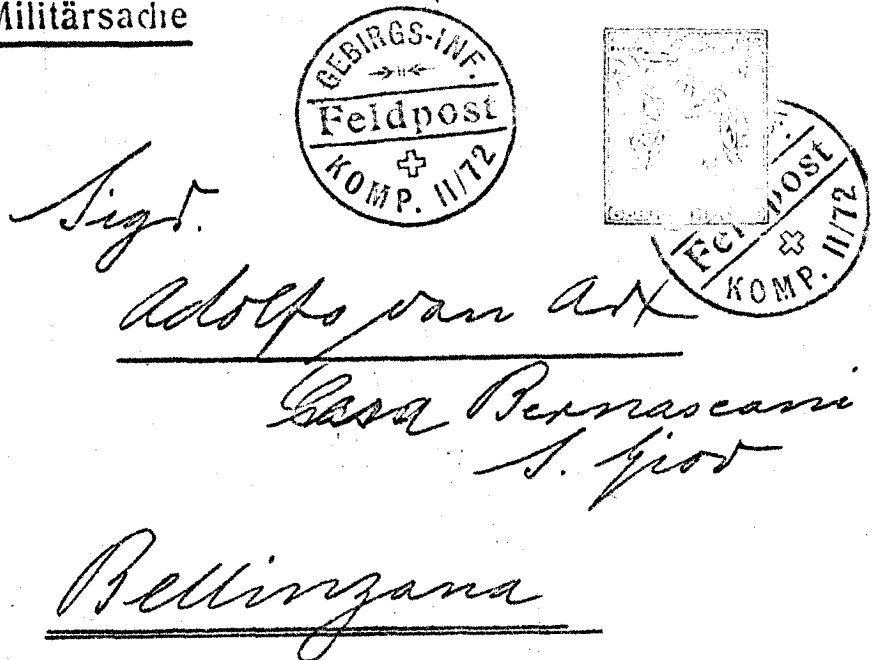 Militärsache
GEBIRGS-INF.
Feldpost
KOMP. II/72
Feldpost
KOMP. II/72
Sigr.
Adolfo von Arx
Casa Bernasconi
S. Giov
Bellinzona